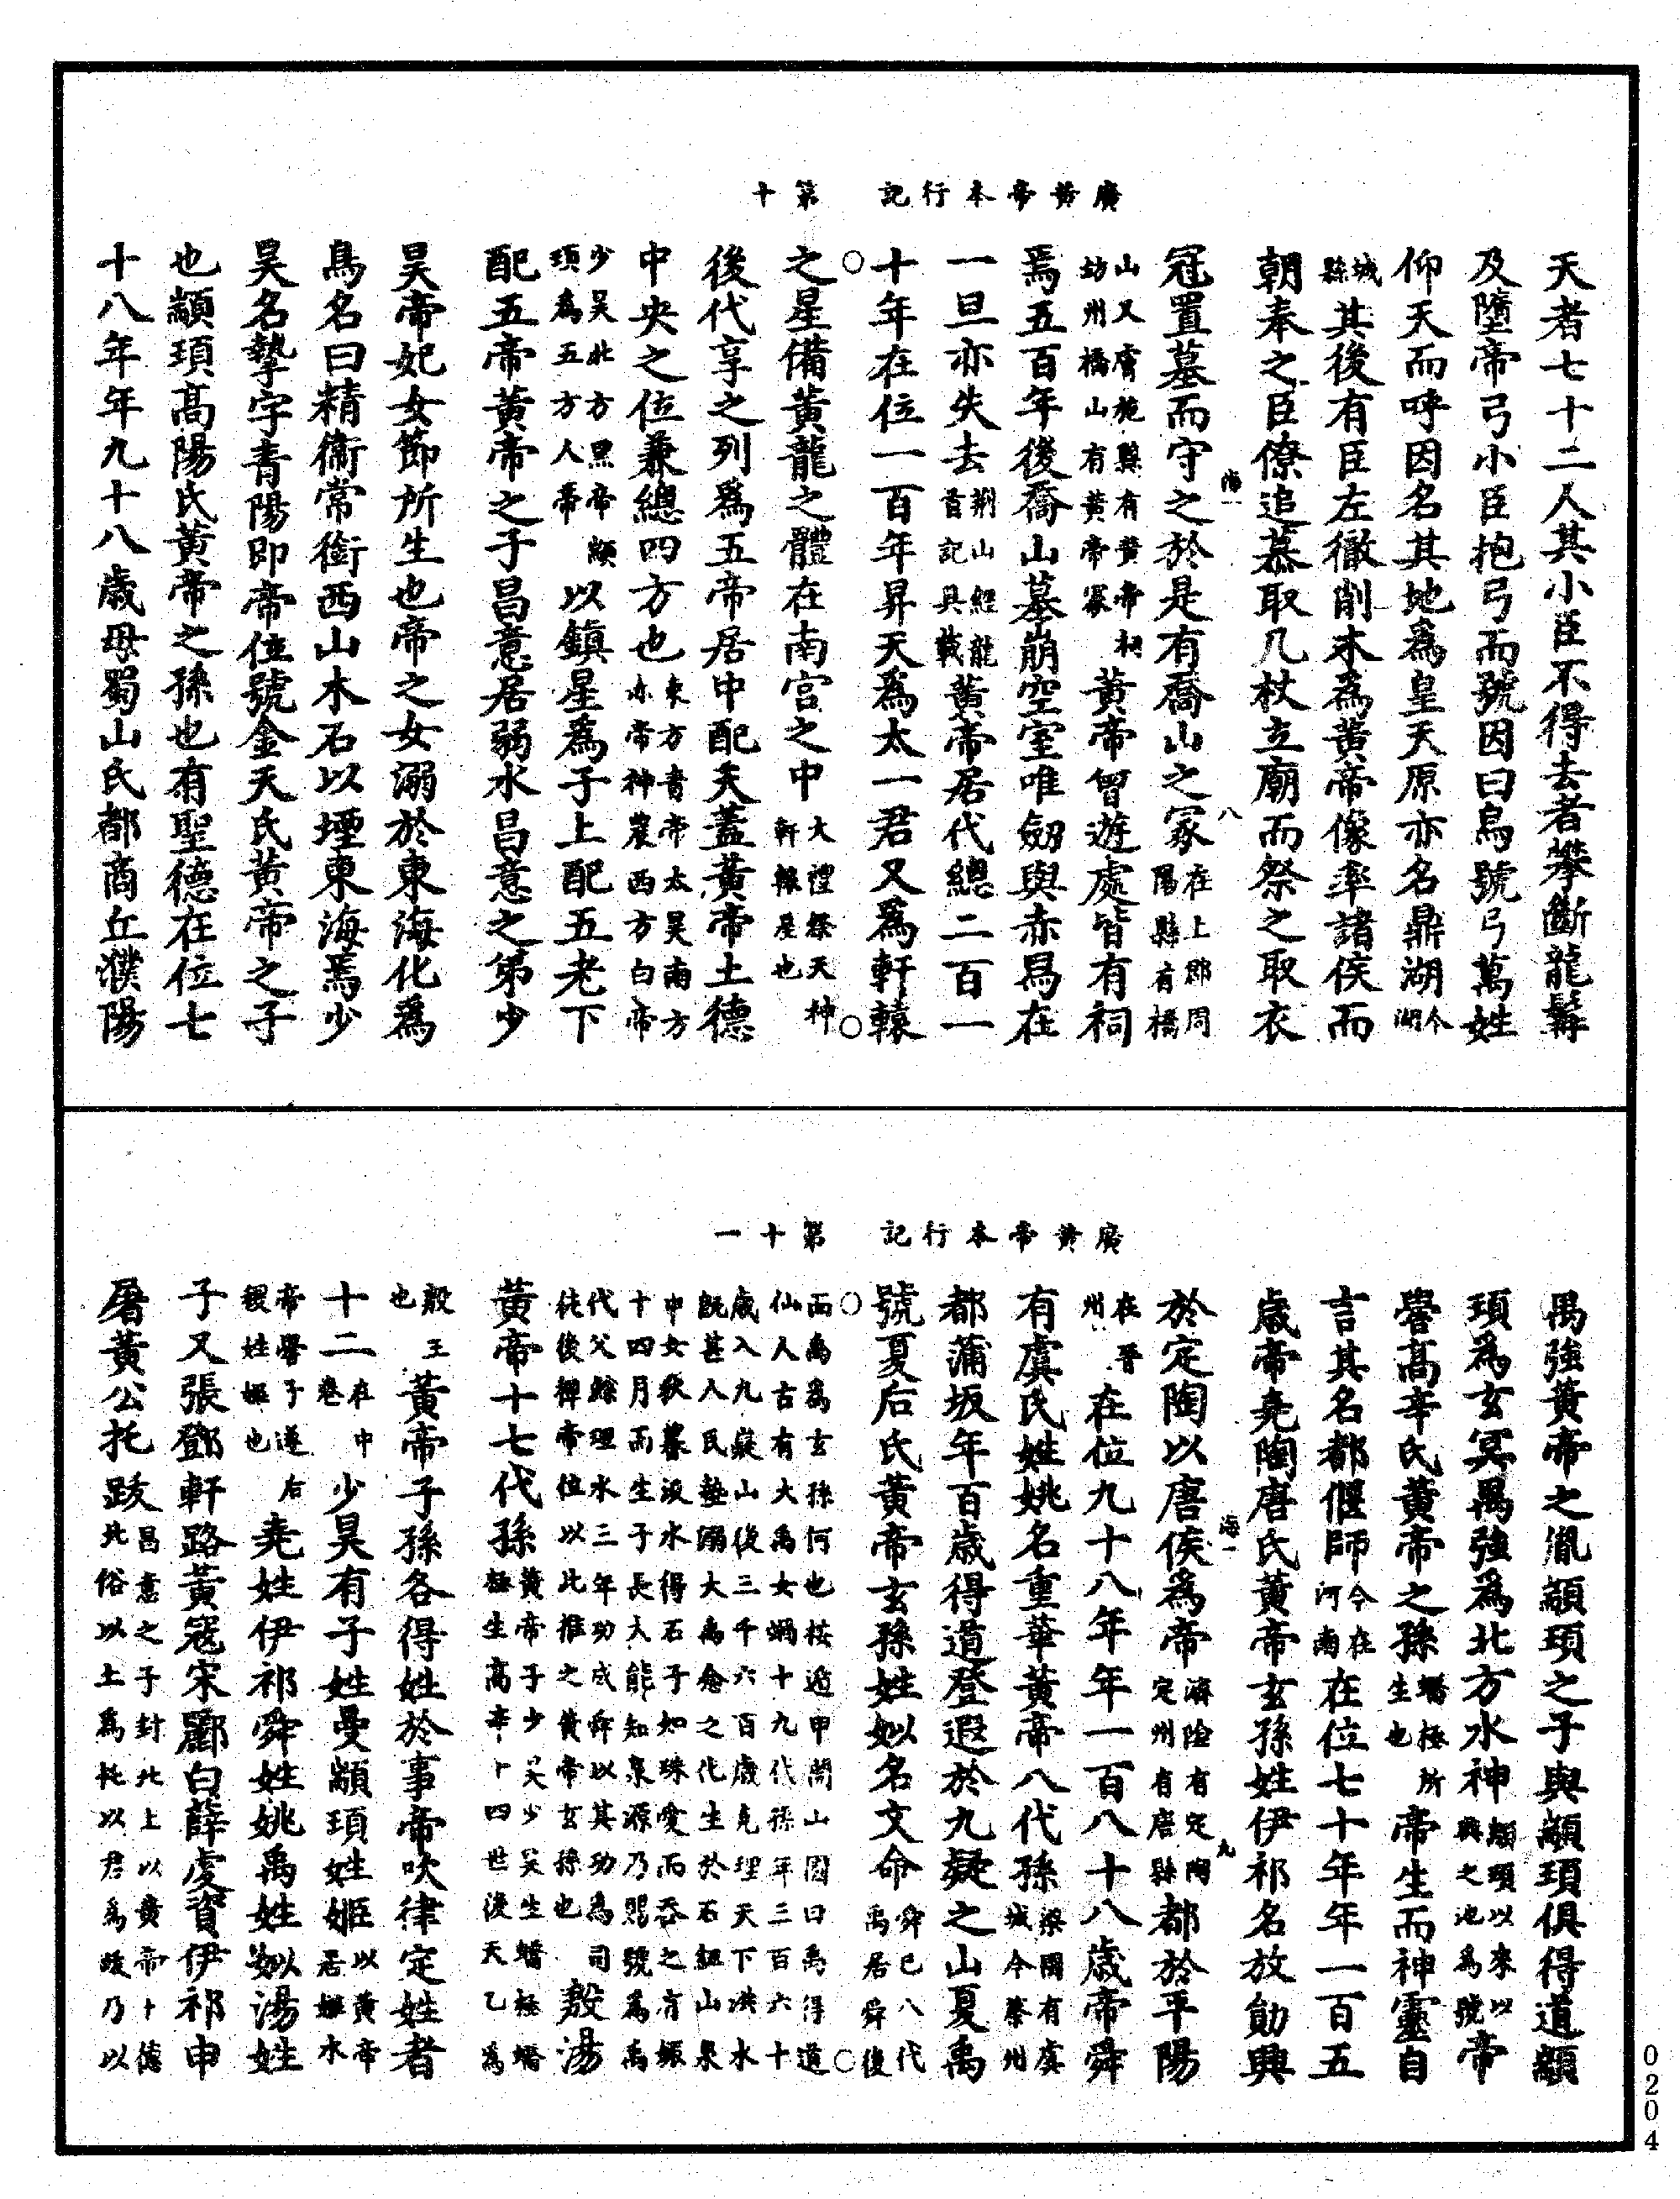 廣黃帝本行記　第十
天者七十二人其小臣不得去者攀斷龍髯
及墮帝弓小臣抱弓而號因曰烏號弓萬姓
仰天而呼因名其地為皇天原亦名鼎湖今湖
城縣其後有臣左徹削木為黃帝像率諸侯而
朝奉之臣僚追慕取几杖立廟而祭之取衣
海一　八
冠置墓而守之於是有喬山之冢在上郡周陽縣有橋
山又膚施縣有黃帝祠坊州橋山有黃帝冢黃帝曾遊處皆有祠
焉五百年後喬山墓崩空室唯劒與赤舄在
一旦亦失去荆山經龍首記具載黃帝居代總二百一
十年在位一百年昇天為太一君又為軒轅
之星備黃龍之體在南宮之中大禮祭天神軒轅星也
後代享之列為五帝居中配天蓋黃帝土德
中央之位兼總四方也東方青帝太昊南方赤帝神農西方白帝
少昊北方黑帝顓頊為五方人帝以鎮星為子上配五老下
配五帝黃帝之子昌意居弱水昌意之弟少
昊帝妃女節所生也帝之女溺於東海化為
鳥名曰精衛常銜西山木石以堙東海焉少
昊名摯字青陽即帝位號金天氏黃帝之子
也顓頊高陽氏黃帝之孫也有聖德在位七
十八年年九十八歲母蜀山氏都商丘濮陽
廣黃帝本行記　第十一
禺強黃帝之胤顓頊之子與顓頊俱得道顓
頊為玄冥禺強為北方水神顓頊以來以興之地為號帝
嚳高辛氏黃帝之孫蟜極所生也帝生而神靈自
言其名都偃師今在河南在位七十年年一百五
歲帝堯陶唐氏黃帝玄孫姓伊祁名放勛興
海一　九
於定陶以唐侯為帝濟陰有定陶定州有唐縣都於平陽
在晉州在位九十八年年一百八十八歲帝舜
有虞氏姓姚名重華黃帝八代孫梁國有虞城今蔡州
都蒲坂年百歲得道登遐於九疑之山夏禹
號夏后氏黃帝玄孫姓姒名文命舜已八代禹居舜後
而禹為玄孫何也按遁甲開山圖曰禹得道
仙人古有大禹女媧十九代孫年三百六十
歲入九嶷山後三千六百歲堯理天下洪水
既甚人民墊溺大禹念之化生於石紐山泉
中女狄暮汲水得石子如珠愛而吞之有娠
十四月而生子長大能知泉源乃賜號為禹
代父鯀理水三年功成舜以其功為司
徒後禪帝位以此推之黃帝玄孫也殷湯
黃帝十七代孫黃帝子少昊少昊生蟜極蟜極生高辛十四世後天乙為
殷王也黃帝子孫各得姓於事帝吹律定姓者
十二在中卷少昊有子姓曼顓頊姓姬以黃帝居姬水
帝嚳子遂后稷姓姬也堯姓伊祁舜姓姚禹姓姒湯姓
子又張鄧軒路黃寇宋酈白薛虔資伊祁申
屠黃公托跋昌意之子封北土以黃帝土德北俗以土為托以君為跋乃以
0204